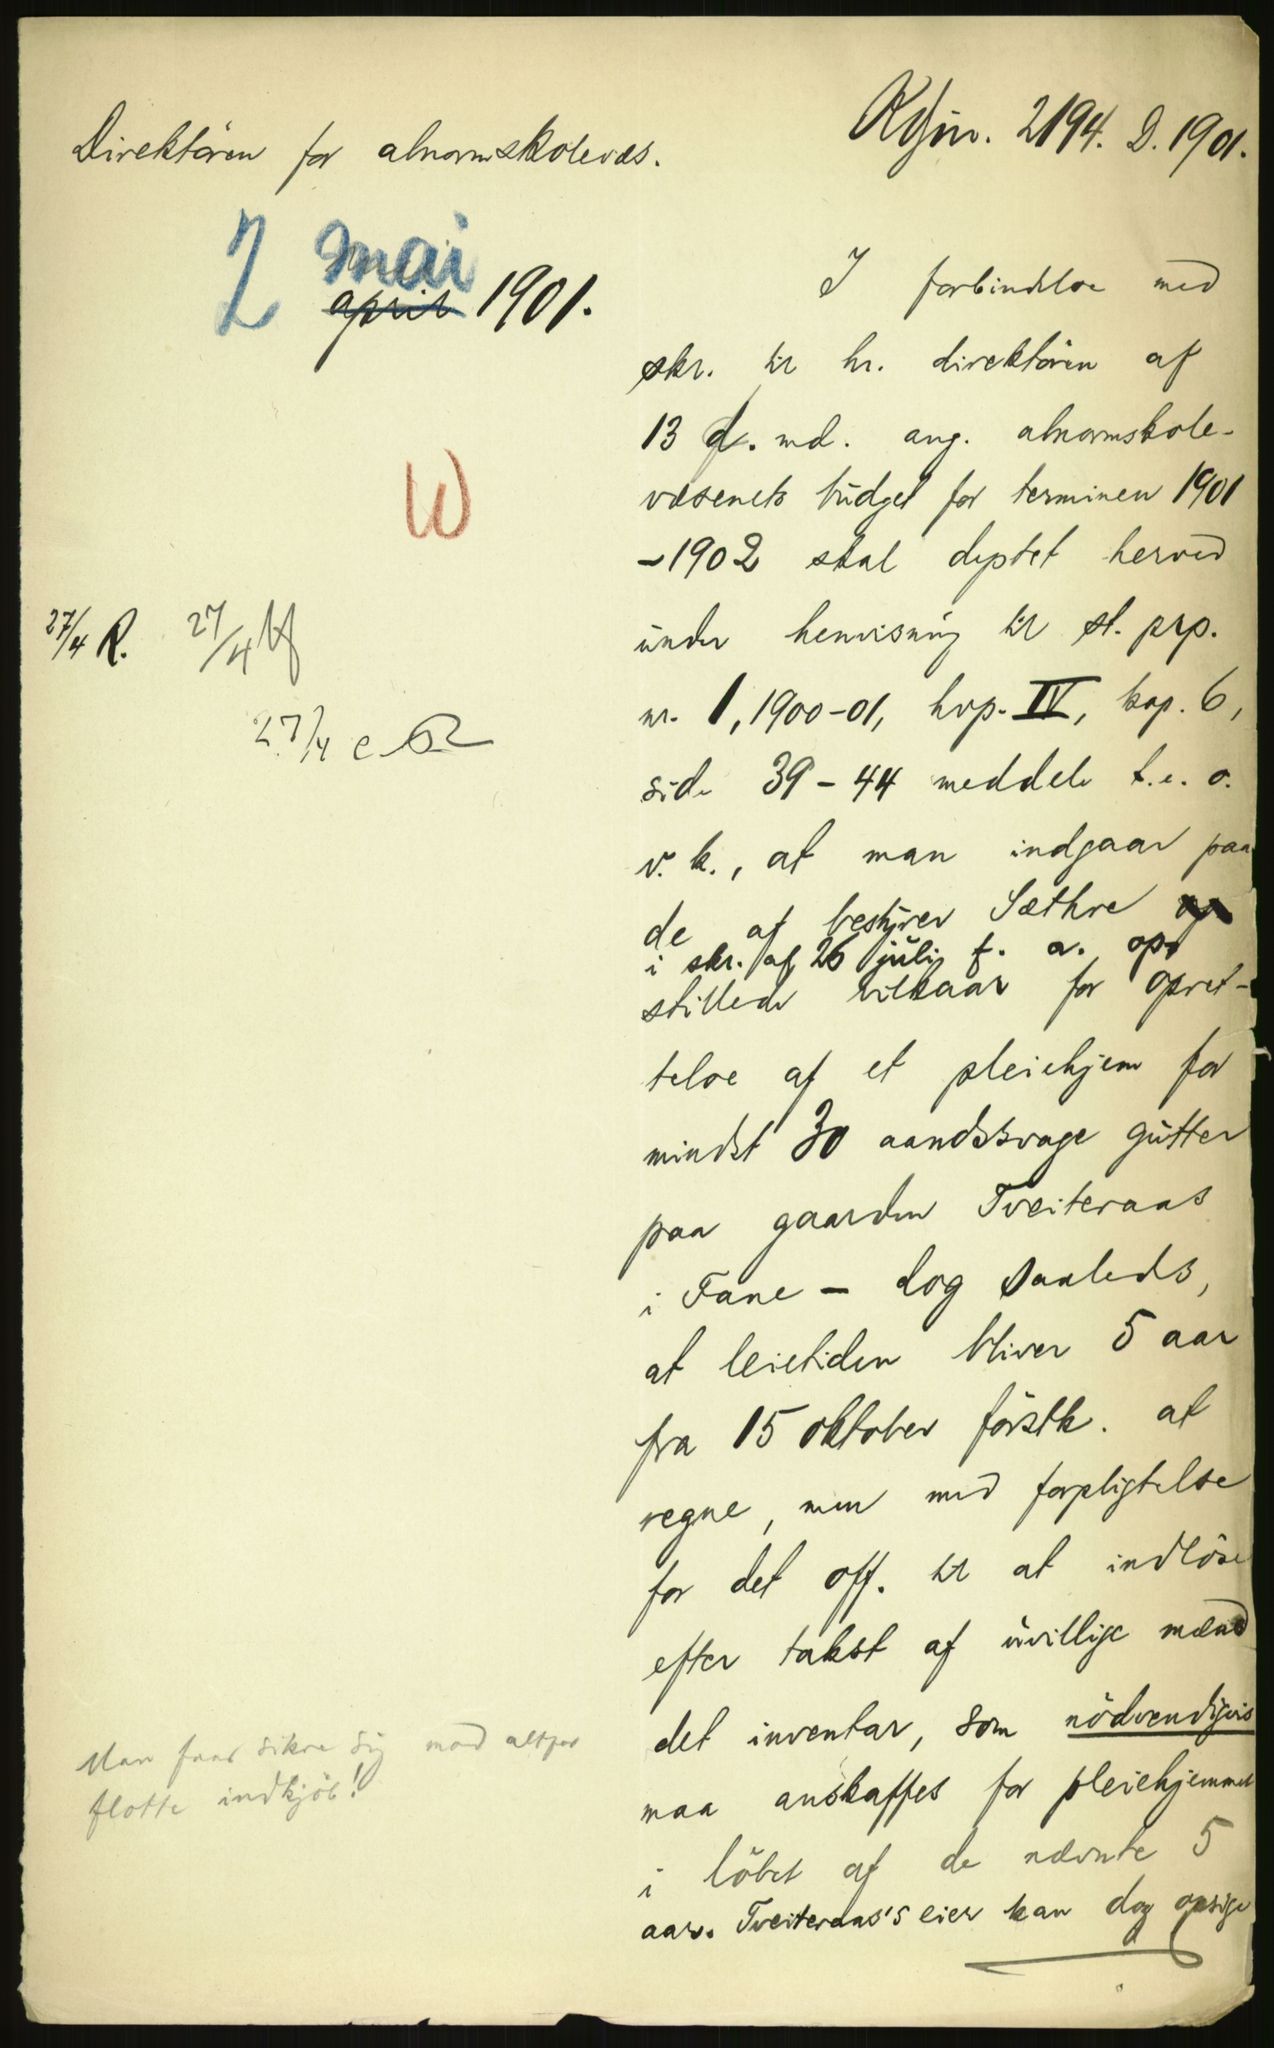 Direktören for abnormskolevæs.
Kdjnr. 2194. D. 1901.
2 mai
april 1901.
W
27/4 R. 27/4
27/4
I forbindelse med
skr. til hr. direktören af
13 d. md. ang. abnormskole-
væsenets budget for terminen 1901
-1902 skal deptet herved
under henvisning til st. prp.
nr. 1, 1900-01, hvp. IV, kap. 6,
side 39-44 meddele t. e. o.
v. k., at man indgaar paa
de af bestyrer Sæthre
i skr. af 26 juli f. a. op-
stillede vilkaar for opret-
telse af et pleiehjem for
mindst 30 aandssvage gutter
paa gaarden Tveiteraas
i Fane - dog saaleds,
at leietiden bliver 5 aar
fra 15 oktober förstk. at
regne, men med forpligtelse
for det off. til at indlöse
efter takst af uvillige mænd
det inventar, som nödvendigvis
maa anskaffes for pleiehjemmet
i löbet af de nævnte 5
aar. Tveiteraas's eier kan dog opsige
Man faar sikre sig mod altfor
flotte indkjöb!